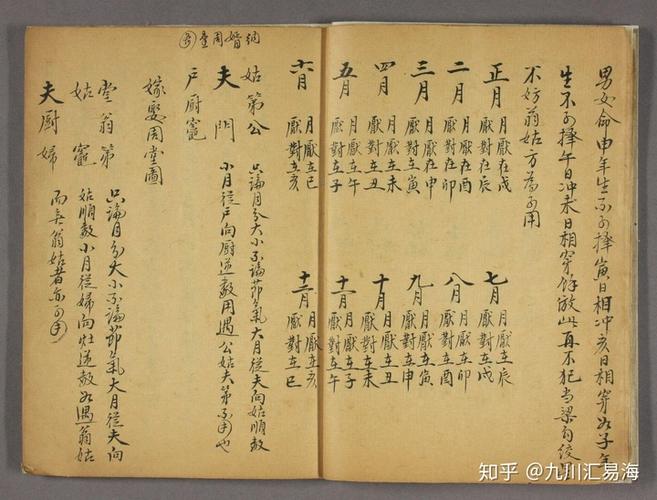 男女命申年生不可擇寅日相冲亥日相穿如子年
生不可擇午日冲未日相穿餘倣此再不犯当梁勾絞
不妨翁姑方為可用
正月 月厭在戌 厭對在辰
七月 月厭在辰 厭對在戌
二月 月厭在酉 厭對在卯
八月 月厭在卯 厭對在酉
三月 月厭在申 厭對在寅
九月 月厭在寅 厭對在申
四月 月厭在未 厭對在丑
十月 月厭在丑 厭對在未
五月 月厭在午 厭對在子
十一月 月厭在子 厭對在午
六月 月厭在巳 厭對在亥
十二月 月厭在亥 厭對在巳
納婚周堂圖
姑第公
夫門
戶厨竈
只論月分大小不論節氣大月從夫向姑順數
小月從戶向厨逆數用遇公姑夫第不可用也
嫁娶周堂圖
堂翁第
姑竈
夫厨婦
只論月分大小不論節氣大月從夫向
姑順數小月從婦向灶逆數如遇翁姑
而無翁姑者亦可用
知乎 @九川汇易海